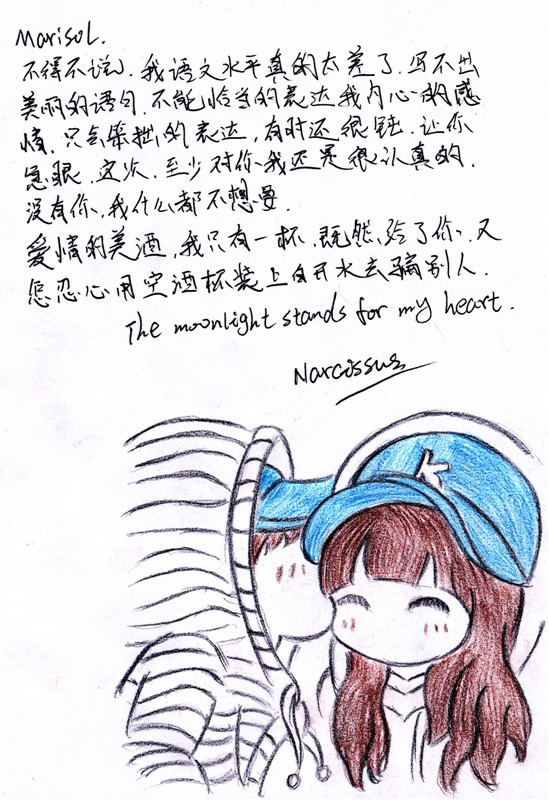 Marisol.
不得不说，我语文水平真的太差了．写不出
美丽的语句．不能恰当的表达我内心的感
情．只会笨拙的表达，有时还很钝．让你
急眼．这次，至少对你我还是很认真的．
没有你、我什么都不想要．
爱情的美酒，我只有一杯．既然给了你、又
怎忍心用空酒杯装上白开水去骗别人．
The moonlight stands for my heart.
Narcossus
K